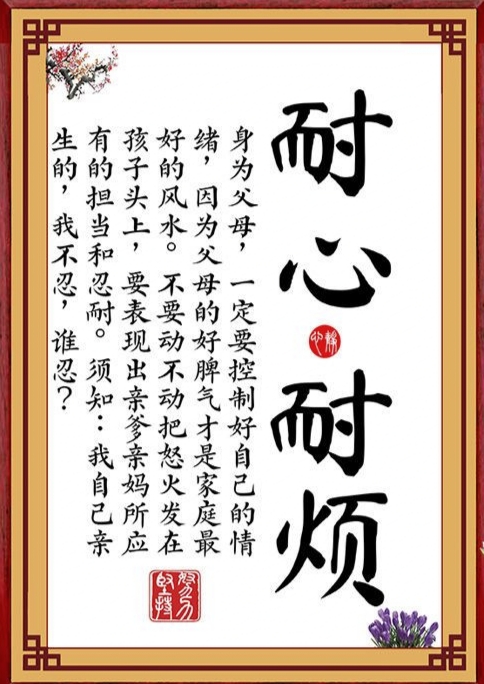 耐心耐烦
静心
身为父母，一定要控制好自己的情
绪，因为父母的好脾气才是家庭最
好的风水。不要动不动把怒火发在
孩子头上，要表现出亲爹亲妈所应
有的担当和忍耐。须知：我自己亲
生的，我不忍，谁忍？
努力
坚持